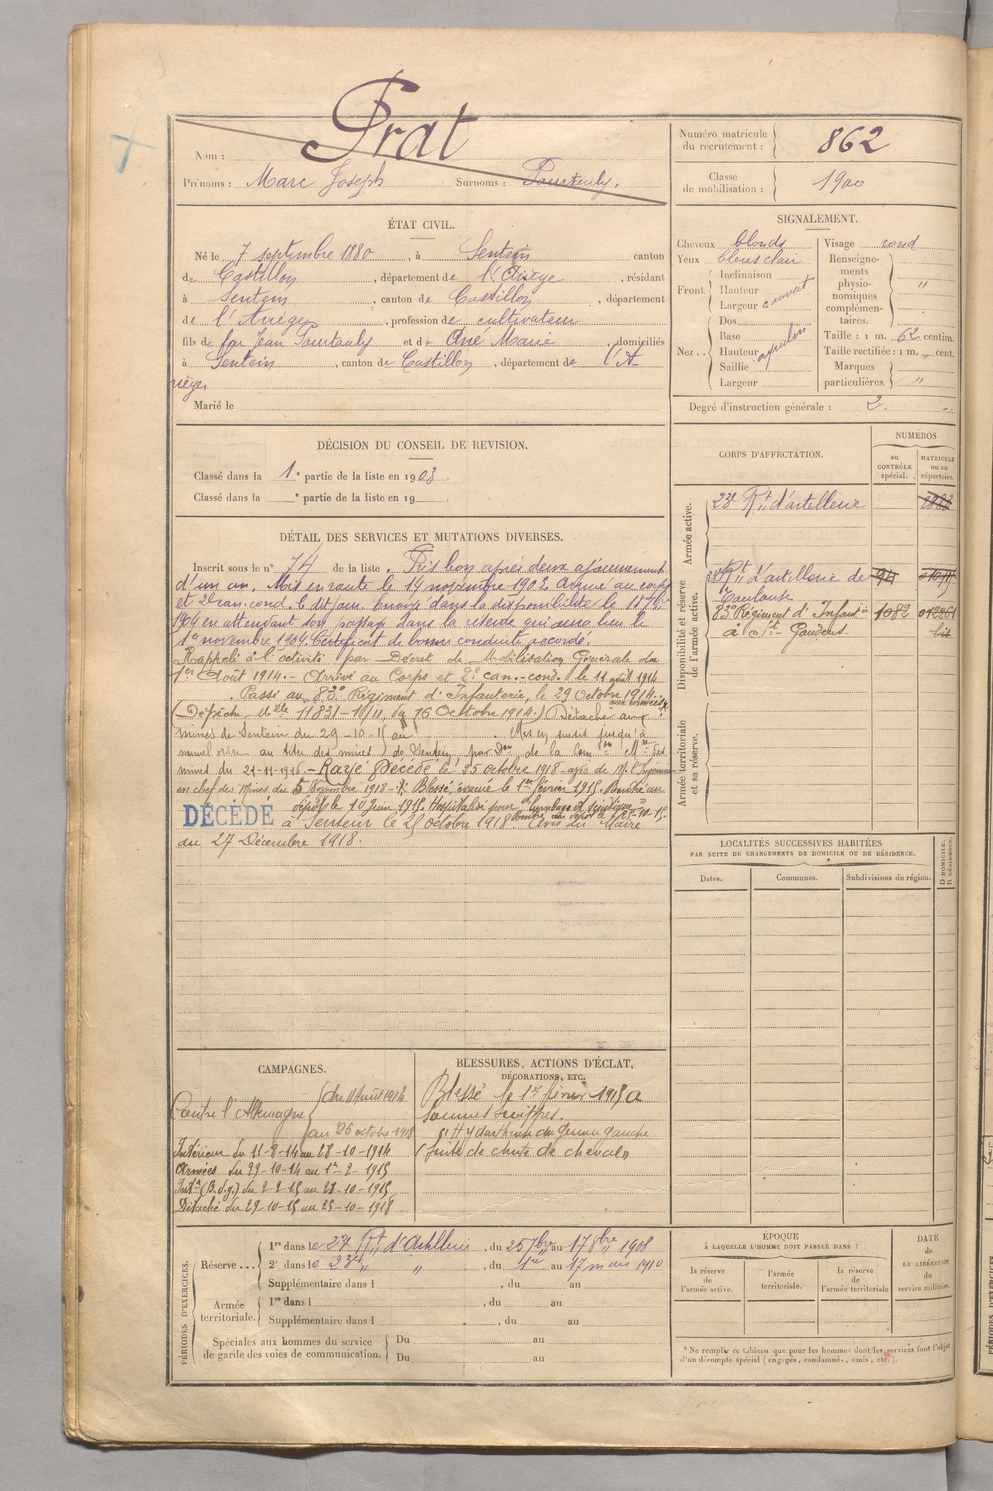 Prat
Nom :
Prénoms : Marc Joseph Surnoms : Pourtauly.
Numéro matricule
du recrutement : 862
Classe
de mobilisation : 1900
ÉTAT CIVIL.
Né le 7 septembre 1880, à Sentein canton
de Castillon, département de l'Ariège, résidant
à Sentein, canton de Castillon, département
de l'Ariège, profession de cultivateur
fils de feu Jean Pourtauly et de Ané Marie, domiciliés
à Sentein, canton de Castillon, département de l'A
riège
Marié le
SIGNALEMENT.
Cheveux blonds
Yeux bleus clair
Front. Inclinaison
Hauteur
Largeur couvert
Nez .. Dos
Base
Hauteur aquilin
Saillie
Largeur
Visage rond
Renseigne-
ments
physio-
nomiques
complémen-
taires. "
Taille : 1 m. 62 centim.
Taille rectifiée : 1 m. cent.
Marques
particulières. "
Degré d'instruction générale : 2
DÉCISION DU CONSEIL DE REVISION.
Classé dans la 1e partie de la liste en 1903.
Classé dans la e partie de la liste en 19
CORPS D'AFFECTATION.
NUMÉROS
au
CONTRÔLE
spécial.
MATRICULE
ou au
répertoire.
Armée active.
23e Rt d'artillerie
Disponibilité et réserve
de l'armée active.
Rt d'artillerie de
Toulouse
83e Régiment d'Infanie 1082
à St- Gaudens. bis
Armée territoriale
et sa réserve.
DÉTAIL DES SERVICES ET MUTATIONS DIVERSES.
Inscrit sous le n° 74 de la liste. Pris bon après deux ajournements
d'un an. Mis en route le 14 novembre 1903. Arrivé au corps
et 2e can. cond. le dit jour. Envoyé dans la disponibilité le
1904 en attendant son passage dans la réserve qui aura lieu le
1er novembre 1904. Certificat de bonne conduite accordé.
Rappelé à l'activité par Décret de Mobilisation Générale du
1er Août 1914. - Arrivé au Corps et 2e can.-cond. le 11 août 1914
. Passé au 83e Régiment d'Infanterie, le 29 Octobre 1914.
aux armées
(Dépêche Melle 11831-10/11, du 16 Octobre 1914.) Détaché aux
mines de Sentein du 29-10-15 au . Mis en sursis jusqu'à
nouvel ordre au titre des mines de Sentein, par Don de la Comon Mre des
mines du 21-11-1916. - Rayé Décédé le 25 octobre 1918 - avis de M. l'Ingénieur
en chef des Mines du 5 Novembre 1918 - Blessé, évacué le 1er février 1915. Rentré au
dépôt le 10 Juin 1915. Hospitalisé pour lumbago et sciatique
DÉCÉDÉ à Sentein le 25 octobre 1918. Avis du Maire
du 27 Décembre 1918.
LOCALITÉS SUCCESSIVES HABITÉES
PAR SUITE DE CHANGEMENTS DE DOMICILE OU DE RÉSIDENCE.
Dates.
Communes.
Subdivisions de région.
D. DOMICILE.
R. RÉSIDENCE.
CAMPAGNES.
Contre l'Allemagne
du 11 Août 1914
au 25 octobre 1918
Intérieur du 11-8-14 au 28-10-1914
Armées du 29-10-14 au 1er-2-1915
Intr (B. d. g.) du 2-2-15 au 28-10-1915
Détaché du 29-10-15 au 25-10-1918
BLESSURES, ACTIONS D'ÉCLAT,
DÉCORATIONS, ETC.
Blessé le 1er février 1915 à
Somme Suippes.
Hydarthrose du genou gauche
(suite de chute de cheval)
PÉRIODES D'EXERCICES.
Réserve ... 1re dans le 23e Rt d'Artillerie, du 25 7bre au 17 8bre 1908
2e dans le 23e " ", du 1er au 17 mai 1910
Supplémentaire dans l , du au
Armée
territoriale. 1re dans l , du au
Supplémentaire dans l , du au
Spéciales aux hommes du service
de garde des voies de communication.
Du au
Du au
ÉPOQUE
À LAQUELLE L'HOMME DOIT PASSER DANS :
la réserve
de
l'armée active.
l'armée
territoriale.
la réserve
de
l'armée territoriale
DATE
de
LA LIBÉRATION
du
service militaire.
* Ne remplir ce tableau que pour les hommes dont les services font l'objet
d'un décompte spécial (engagés, condamnés, omis, etc.).